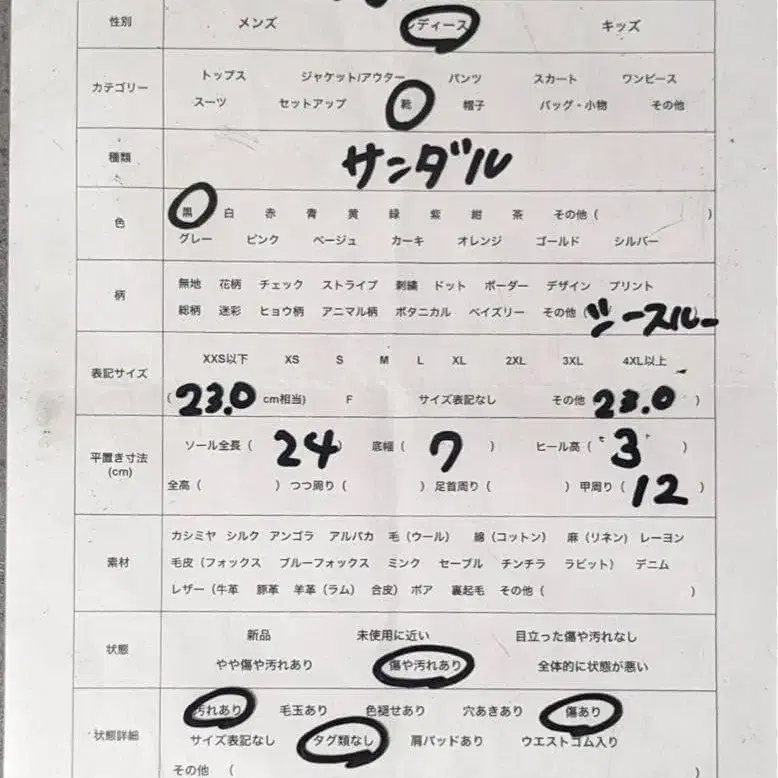 性別 メンズ レディース キッズ
カテゴリー トップス ジャケット/アウター パンツ スカート ワンピース
スーツ セットアップ 靴 帽子 バッグ・小物 その他
種類 サンダル
色 黒 白 赤 青 黄 緑 紫 紺 茶 その他 ( )
グレー ピンク ベージュ カーキ オレンジ ゴールド シルバー
柄 無地 花柄 チェック ストライプ 刺繍 ドット ボーダー デザイン プリント
総柄 迷彩 ヒョウ柄 アニマル柄 ボタニカル ペイズリー その他 ( シースルー
表記サイズ XXS以下 XS S M L XL 2XL 3XL 4XL以上
( 23.0 cm相当) F サイズ表記なし その他 23.0 )
平置き寸法 (cm) ソール全長 ( 24 ) 底幅 ( 7 ) ヒール高 ( 3 )
全高 ( ) つつ周り ( ) 足首周り ( ) 甲周り ( 12 )
素材 カシミヤ シルク アンゴラ アルパカ 毛 (ウール) 綿 (コットン) 麻 (リネン) レーヨン
毛皮 (フォックス ブルーフォックス ミンク セーブル チンチラ ラビット) デニム
レザー (牛革 豚革 羊革 (ラム) 合皮) ボア 裏起毛 その他 ( )
状態 新品 未使用に近い 目立った傷や汚れなし
やや傷や汚れあり 傷や汚れあり 全体的に状態が悪い
状態詳細 汚れあり 毛玉あり 色褪せあり 穴あきあり 傷あり
サイズ表記なし タグ類なし 肩パッドあり ウエストゴム入り
その他 (